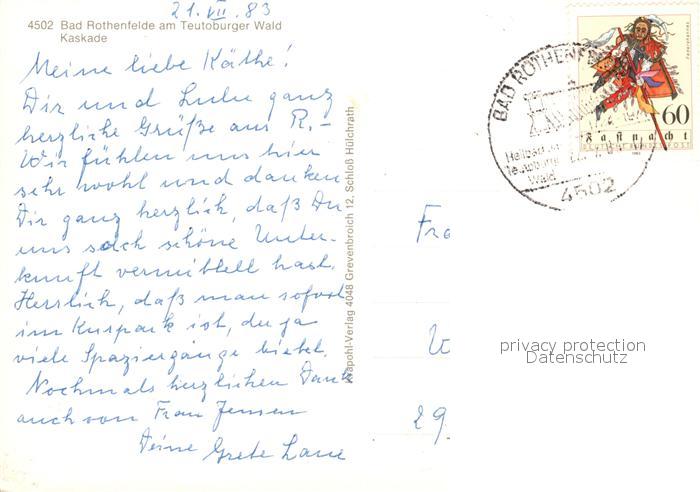 21. VII. 83
4502 Bad Rothenfelde am Teutoburger Wald
Kaskade
Meine liebe Käthe!
Dir und Lulu ganz
herzliche Grüße aus R.-
Wir fühlen uns hier
sehr wohl und danken
Dir ganz herzlich, daß Du
uns solch schöne Unter-
kunft vermittelt hast.
Herrlich, daß man sofort
im Kurpark ist, der ja
viele Spaziergänge bietet.
Nochmals herzlichen Dank
auch von Frau Jensen
Deine Grete
Krapohl-Verlag 4048 Grevenbroich 12, Schloß Hülchrath
BAD ROTHENFELDE
Teutoburger
Wald
4502
60
Fastnacht
DEUTSCHE BUNDESPOST
Fra
29.
privacy protection
Datenschutz